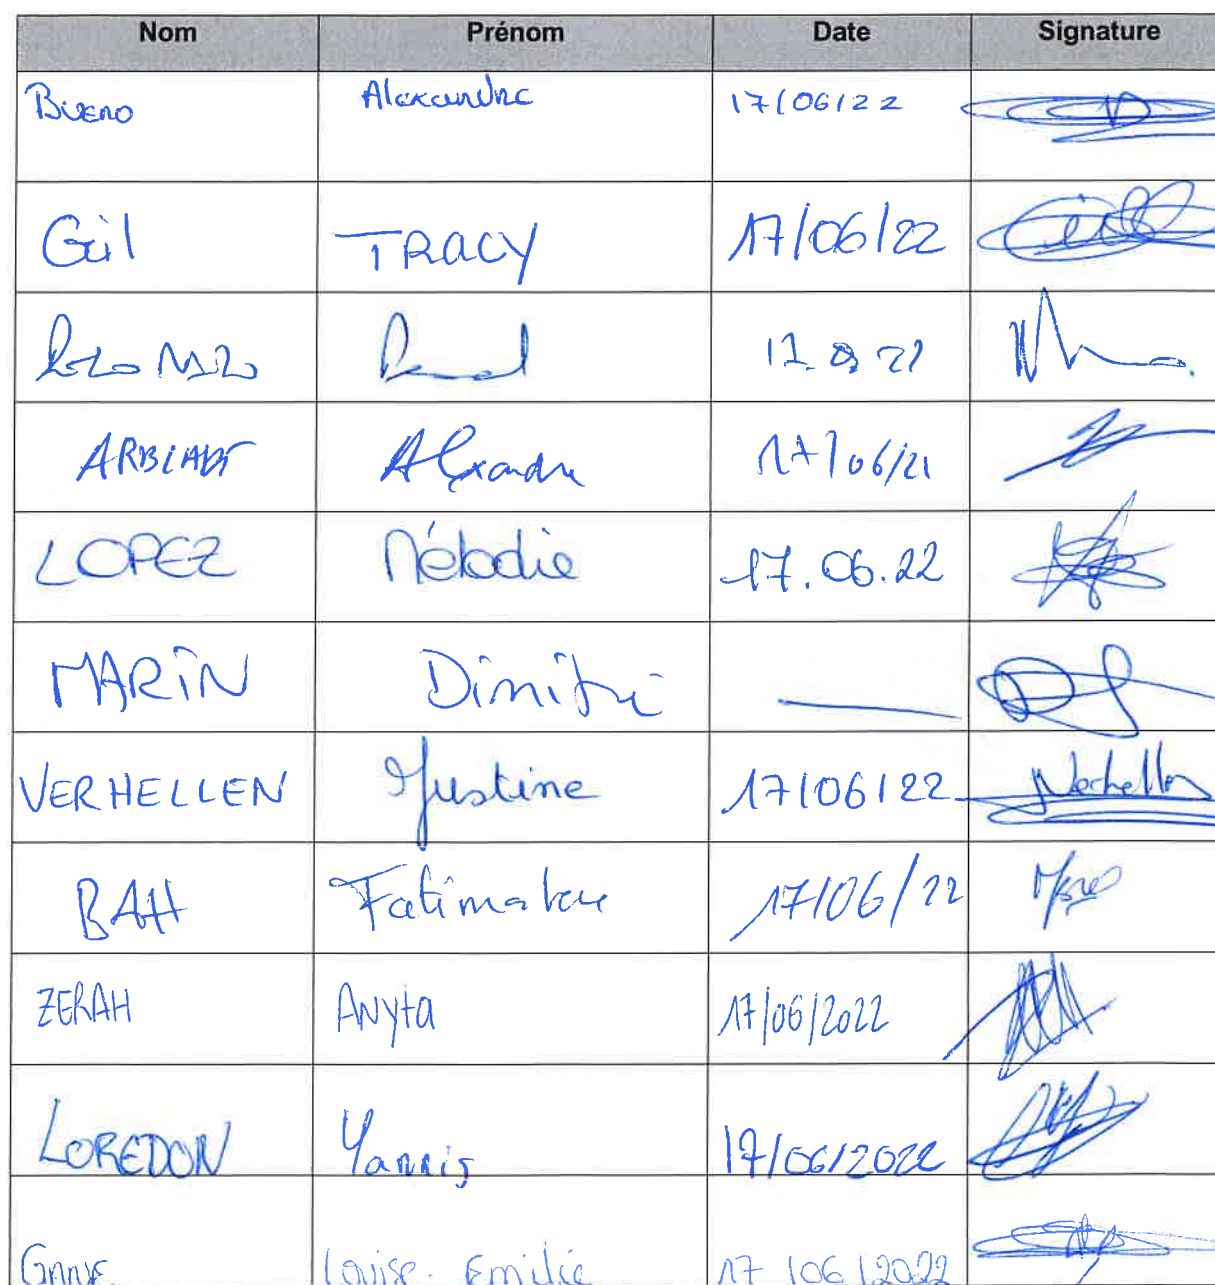 Nom Prénom Date Signature
BUENO Alexandre 17/06/22
Gil TRACY 17/06/22
ARBLADE Alexandre 17/06/21
LOPEZ Mélodie 17.06.22
MARIN Dimitri —
VERHELLEN Justine 17/06/22 JVerhellen
BAH Fatimatou 17/06/22
ZERAH Anyta 17/06/2022
LOREDON Yannis 17/06/2022
Louise-Emilie 17/06/2022